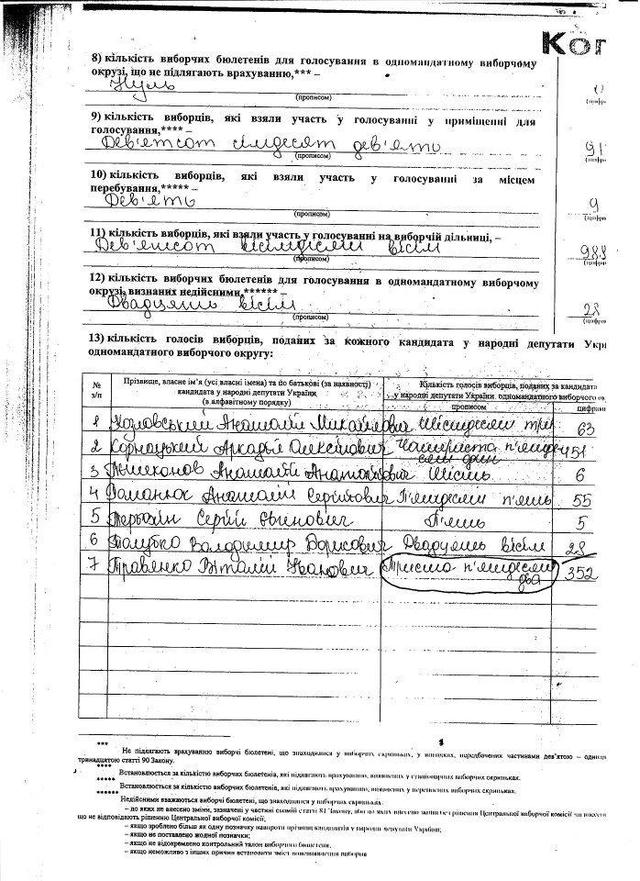 Коп
8) кількість виборчих бюлетенів для голосування в одномандатному виборчому
окрузі, що не підлягають врахуванню,*** –
Нуль
(прописом)
9) кількість виборців, які взяли участь у голосуванні у приміщенні для
голосування,**** –
Дев'ятсот сімдесят дев'ять
(прописом)
10) кількість виборців, які взяли участь у голосуванні за місцем
перебування,***** –
Дев'ять
9
(прописом)
11) кількість виборців, які взяли участь у голосуванні на виборчій дільниці, –
Дев'ятсот вісімдесят вісім
988
(прописом)
12) кількість виборчих бюлетенів для голосування в одномандатному виборчому
окрузі, визнаних недійсними,****** –
Двадцять вісім
28
(прописом)
13) кількість голосів виборців, поданих за кожного кандидата у народні депутати Укр
одномандатного виборчого округу:
№ з/п
Прізвище, власне ім'я (усі власні імена) та по батькові (за наявності)
кандидата у народні депутати України
(в алфавітному порядку)
Кількість голосів виборців, поданих за кандидата
у народні депутати України одномандатного виборчого
прописом
цифрами
1 Козловський Анатолій Михайлович Шістдесят три 63
2 Корнацький Аркадій Олексійович Чотириста п'ятдесят один 451
3 Анатолій Анатолійович Шість 6
4 Романюк Анатолій Сергійович П'ятдесят п'ять 55
5 Сергій Іванович П'ять 5
6 Володимир Борисович Двадцять вісім 28
7 Травянко Віталій Іванович Триста п'ятдесят два 352
***
Не підлягають врахуванню виборчі бюлетені, що знаходилися у виборчих скриньках, у випадках, передбачених частинами дев'ятою –
тринадцятою статті 90 Закону.
****
Встановлюється за кількістю виборчих бюлетенів, які підлягають врахуванню, виявлених у стаціонарних виборчих скриньках.
*****
Встановлюється за кількістю виборчих бюлетенів, які підлягають врахуванню, виявлених у переносних виборчих скриньках.
******
Недійсними вважаються виборчі бюлетені, що знаходилися у виборчих скриньках:
– до яких не внесено зміни, зазначені у частині
що не відповідають рішенню Центральної виборчої комісії;
– якщо зроблено більш як одну позначку навпроти прізвищ кандидатів у народні депутати України;
– якщо не поставлено жодної позначки;
– якщо не відокремлено контрольний талон виборчого бюлетеня;
– якщо неможливо з інших причин встановити зміст волевиявлення виборця